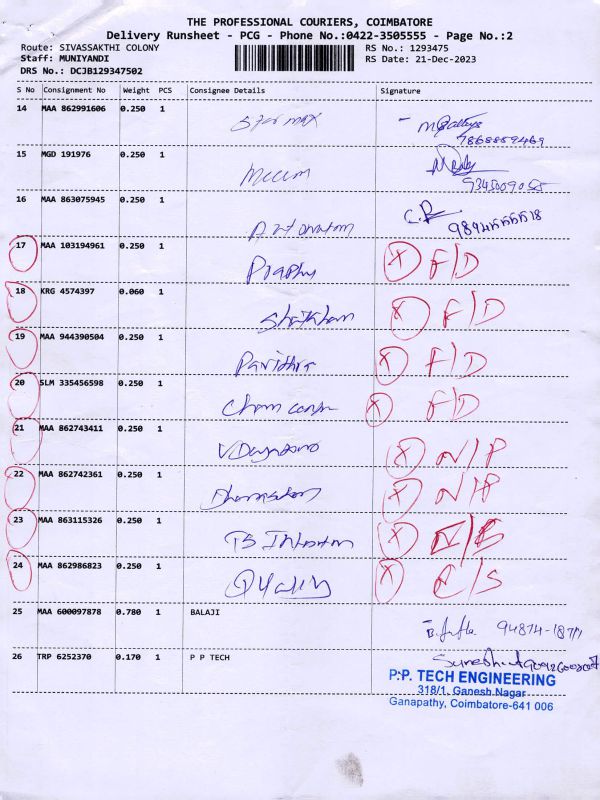 THE PROFESSIONAL COURIERS, COIMBATORE
Delivery Runsheet - PCG - Phone No.:0422-3505555 - Page No.:2
Route: SIVASSAKTHI COLONY RS No.: 1293475
Staff: MUNIYANDI RS Date: 21-Dec-2023
DRS No.: DCJB129347502
S No Consignment No Weight PCS Consignee Details Signature
14 MAA 862991606 0.250 1
15 MGD 191976 0.250 1
16 MAA 863075945 0.250 1
17 MAA 103194961 0.250 1 Prabhu X F/D
18 KRG 4574397 0.060 1 X F/D
19 MAA 944390504 0.250 1 X F/D
20 SLM 335456598 0.250 1 X F/D
21 MAA 862743411 0.250 1 X N/P
22 MAA 862742361 0.250 1 X N/P
23 MAA 863115326 0.250 1 X
24 MAA 862986823 0.250 1 Quality X C/S
25 MAA 600097878 0.780 1 BALAJI
26 TRP 6252370 0.170 1 P P TECH
P.P. TECH ENGINEERING
318/1, Ganesh Nagar
Ganapathy, Coimbatore-641 006